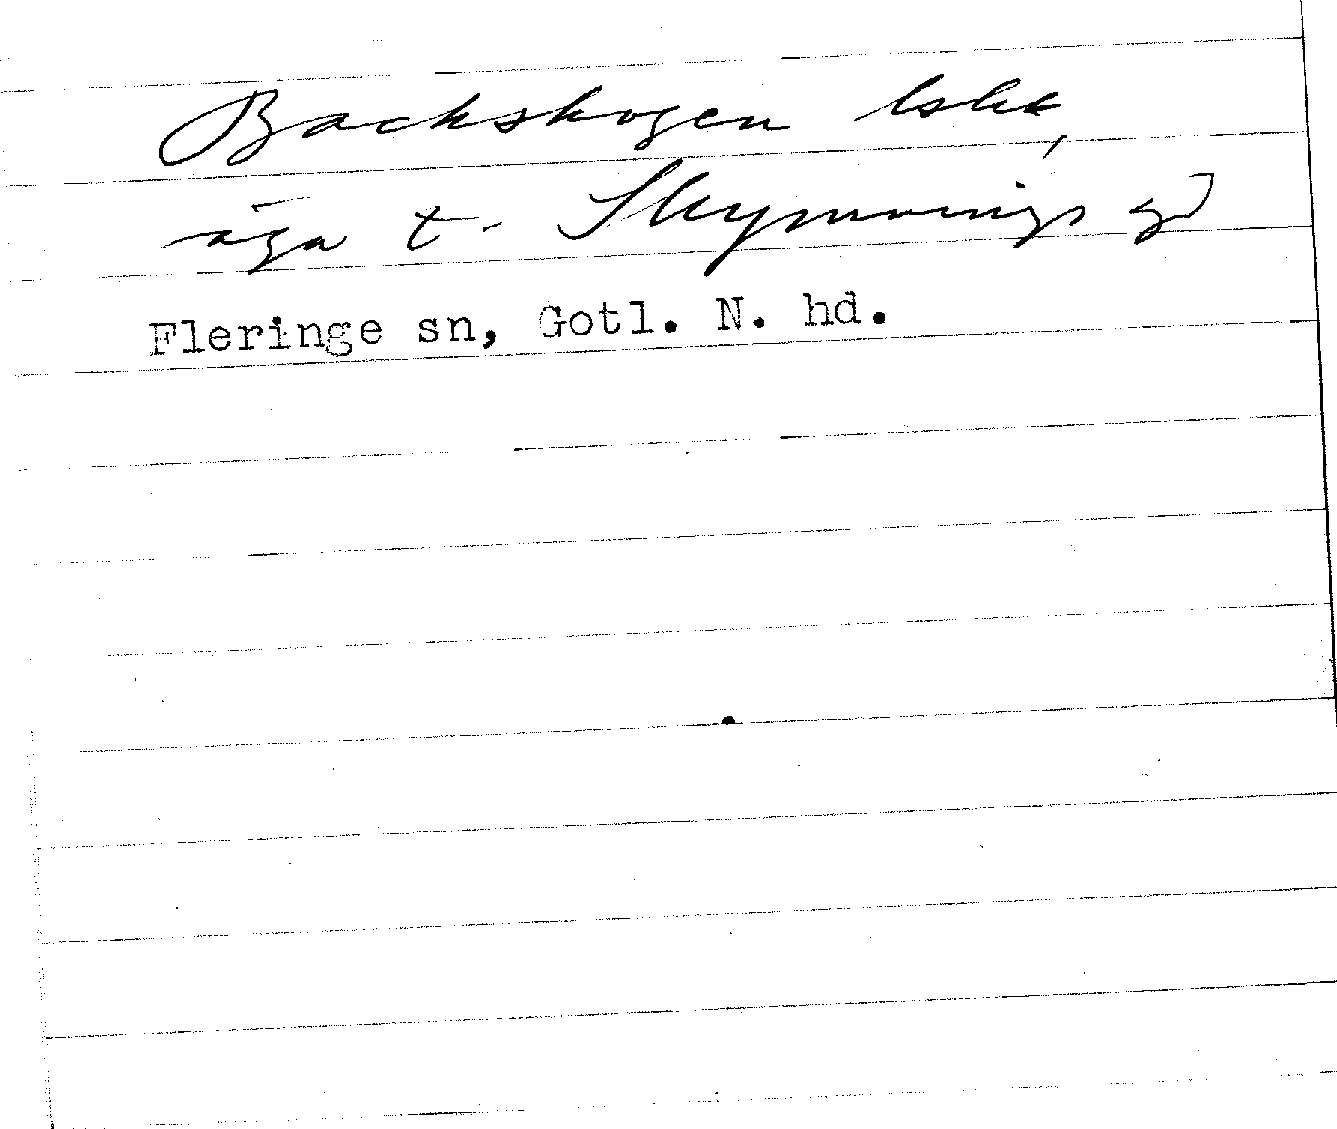 Backskogen lske,
äga t. Skymnings gd
Fleringe sn, Gotl. N. hd.